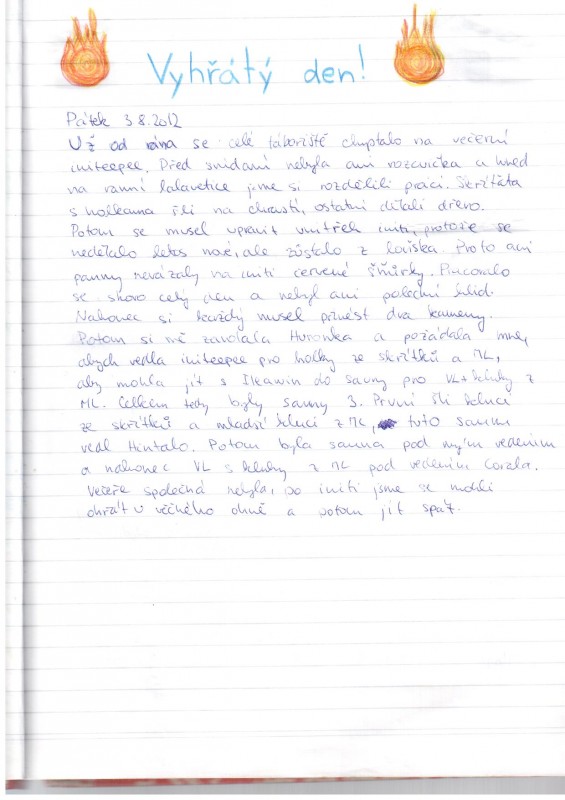 Vyhřátý den!
Pátek 3.8.2012
Už od rána se celé tábořiště chystalo na večerní
initeepee. Před snídaní nebyla ani rozcvička a hned
na ranní jsme si rozdělili práci. Skřítčata
s holkama šli na chrastí, ostatní dělali dřevo.
Potom se musel upravit vnitřek initi, protože se
nedělalo letos nové, ale zůstalo z loňska. Proto ani
panny nevázaly na initi červené šňůrky. Pracovalo
se skoro celý den a nebyl ani polední klid.
Nakonec si každý musel přinést dva kameny.
Potom si mě zavolala Huronka a požádala mne,
abych vedla initeepee pro holky ze skřítků a ML,
aby mohla jít s do sauny pro VL + kluky z
ML. Celkem tedy byly sauny 3. První šli kluci
ze skřítků a mladší kluci z ML, tuto saunu
vedl Hintalo. Potom byla sauna pod mým vedením
a nakonec VL s kluky z ML pod vedením Corala.
Večeře společná nebyla, po initi jsme se mohli
ohřát u věčného ohně a potom jít spát.